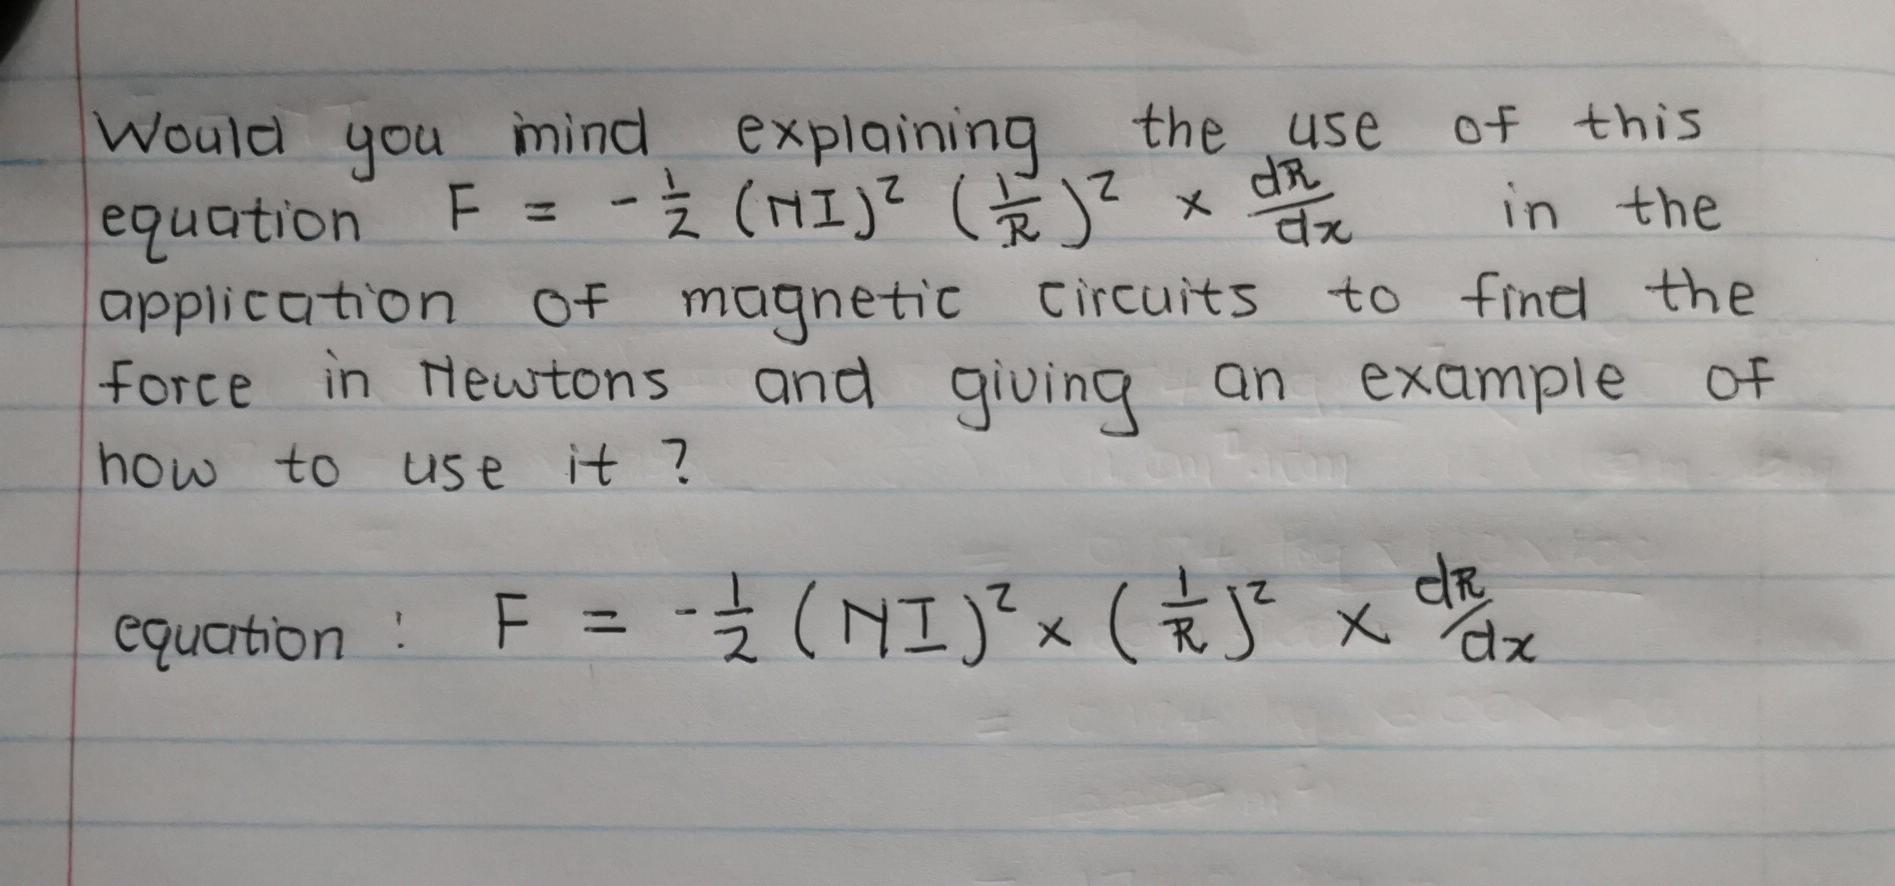 Would you mind explaining the use of this
equation F = - 1/2 (NI)² (1/R)² × dR/dx in the
application of magnetic circuits to find the
force in Newtons and giving an example of
how to use it ?
equation : F = - 1/2 (NI)² × (1/R)² × dR/dx